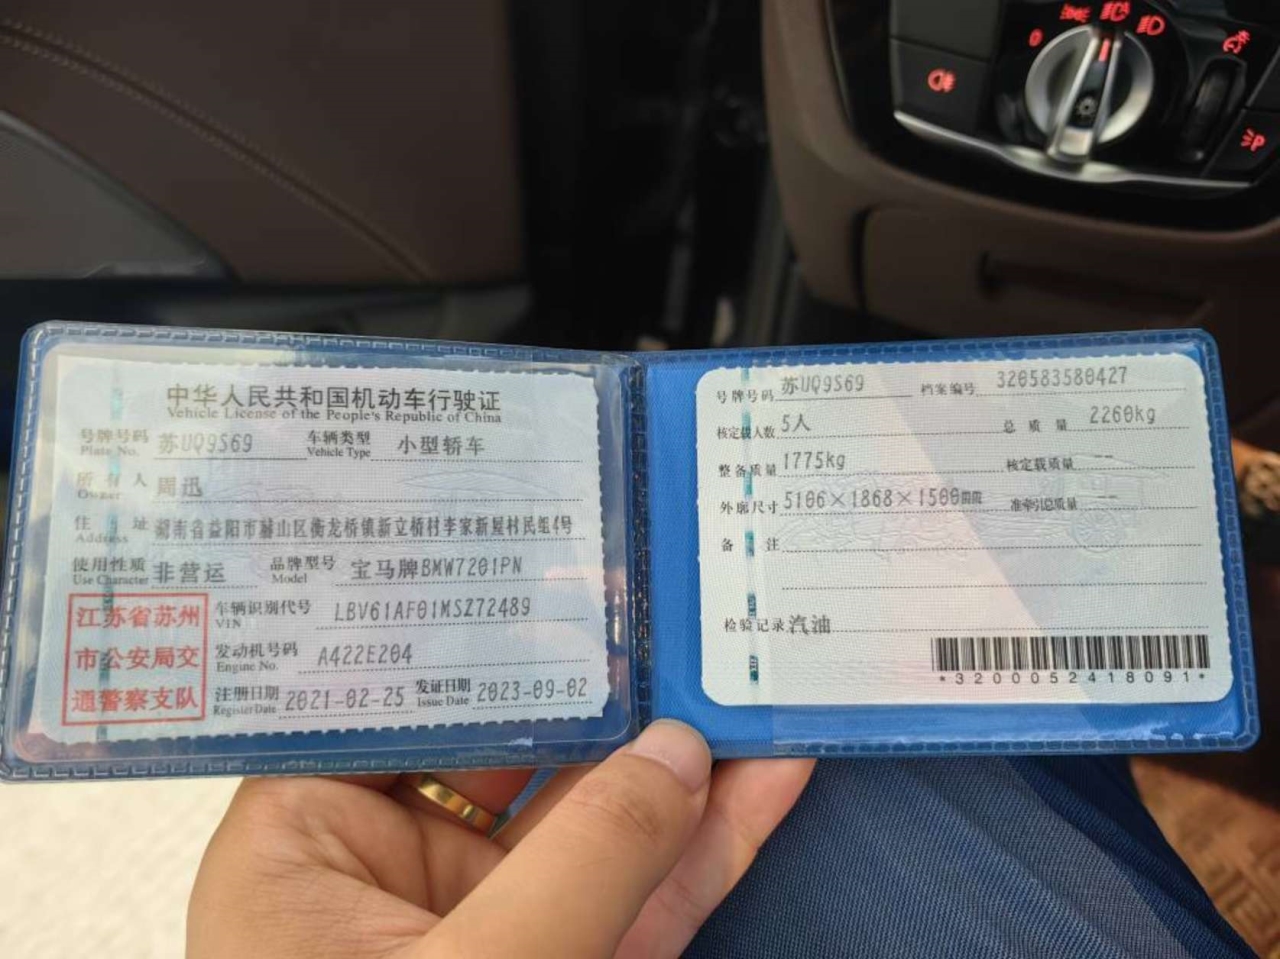 中华人民共和国机动车行驶证
Vehicle License of the People's Republic of China
号牌号码 苏UQ9S69 车辆类型 小型轿车
Plate No. Vehicle Type
所有人 周迅
Owner
住址 湖南省益阳市赫山区衡龙桥镇新立桥村李家新屋村民组4号
Address
使用性质 非营运 品牌型号 宝马牌BMW7201PN
Use Character Model
江苏省苏州
市公安局交
通警察支队
车辆识别代号 LBV61AF01MSZ72489
VIN
发动机号码 A422E204
Engine No.
注册日期 2021-02-25 发证日期 2023-09-02
Register Date Issue Date
号牌号码 苏UQ9S69 档案编号 320583580427
核定载人数 5人 总质量 2260kg
整备质量 1775kg 核定载质量 --
外廓尺寸 5106×1868×1500mm 准牵引总质量 --
备注
检验记录 汽油
*3200052418091*